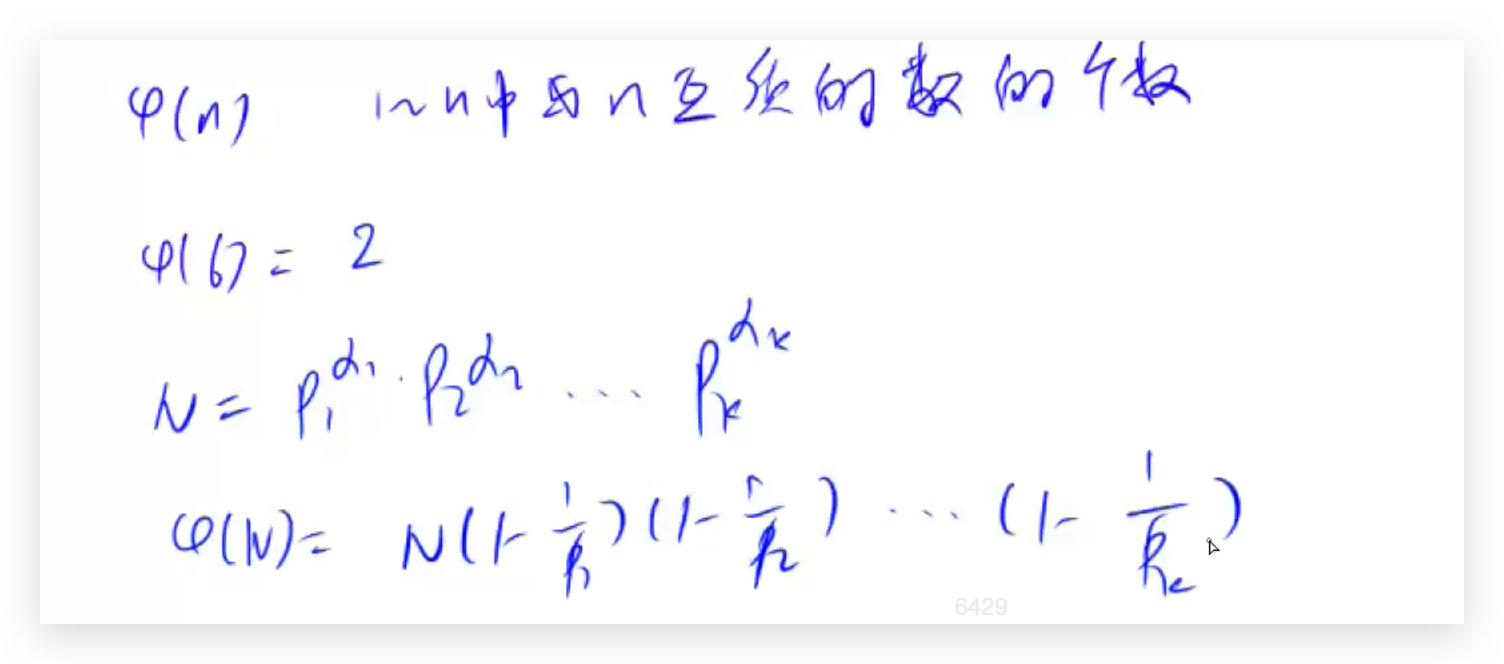 φ(n) 1~n中与n互质的数的个数
φ(6) = 2
N = p₁^α₁ · p₂^α₂ ... pₖ^αₖ
φ(N) = N(1-1/p₁)(1-1/p₂) ... (1-1/pₖ)
6429